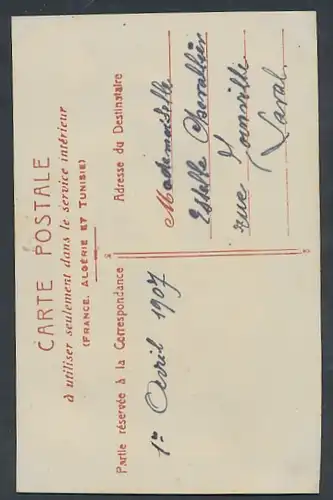 CARTE POSTALE
à utiliser seulement dans le service intérieur
(FRANCE, ALGÉRIE ET TUNISIE)
Partie réservée à la Correspondance
Adresse du Destinataire
1er Avril 1907
Mademoiselle
Estelle
rue
Laval.